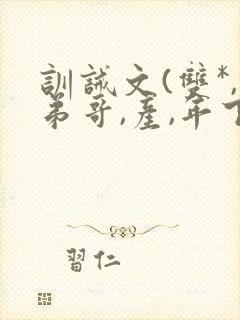 訓誡文(雙*,
弟哥,產,年下
習仁